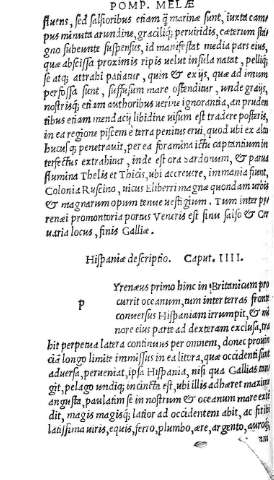 POMP. MELÆ
fluens, sed salsioribus etiam q̃ marinæ sunt, iuxta cam
pus minuta arundine, graciliq; perviridis, cæterum sta
gno subeunte suspensus, id manifestat media pars eius,
quæ abscissa proximis ripis velut insula natat, pelliq;
se atq; attrahi patiatur, quin & ex ijs, quæ ad imum
perfossa sunt, suffusum mare ostenditur, unde graijs,
nostrisq; etiam authoribus verine ignorantia, an pruden
tibus etiam mendacij libidine visum est tradere posteris,
in ea regione piscem è terra penitus erui, quod ubi ex alto
hucusq; penetravit, per ea foramina ictu captantium in
terfectus extrahitur, inde est ora Sardonum, & parua
flumina Thelis et Thicis, ubi accreuere, immania fiunt,
Colonia Ruscino, vicus Eliberri magnæ quondam urbis
& magnarum opum tenue uestigium. Tum inter py
renæi promontoria portus Veneris est sinu salso & Cer
uaria locus, finis Galliæ.
Hispaniæ descriptio. Caput. IIII.
PYrenæus primo hinc in Britannicum pro
currit oceanum, tum inter terras fronte
conuersus Hispaniam irrumpit, & mi
nore eius parte ad dexteram exclusa, tra
hit perpetua latera continuus per omnem, donec prouin
ciã longo limite immissus in ea litora, quæ occidenti sunt
aduersa, perueniat, ipsa Hispania, nisi qua Gallias tan
git, pelago undiq; incincta est, ubi illis adhæret maxime
angusta, paulatim se in nostrum & oceanum mare exten
dit, magis magisq; latior ad occidentem abit, ac fit ibi
latissima uiris, equis, ferro, plumbo, ære, argento, auroq;